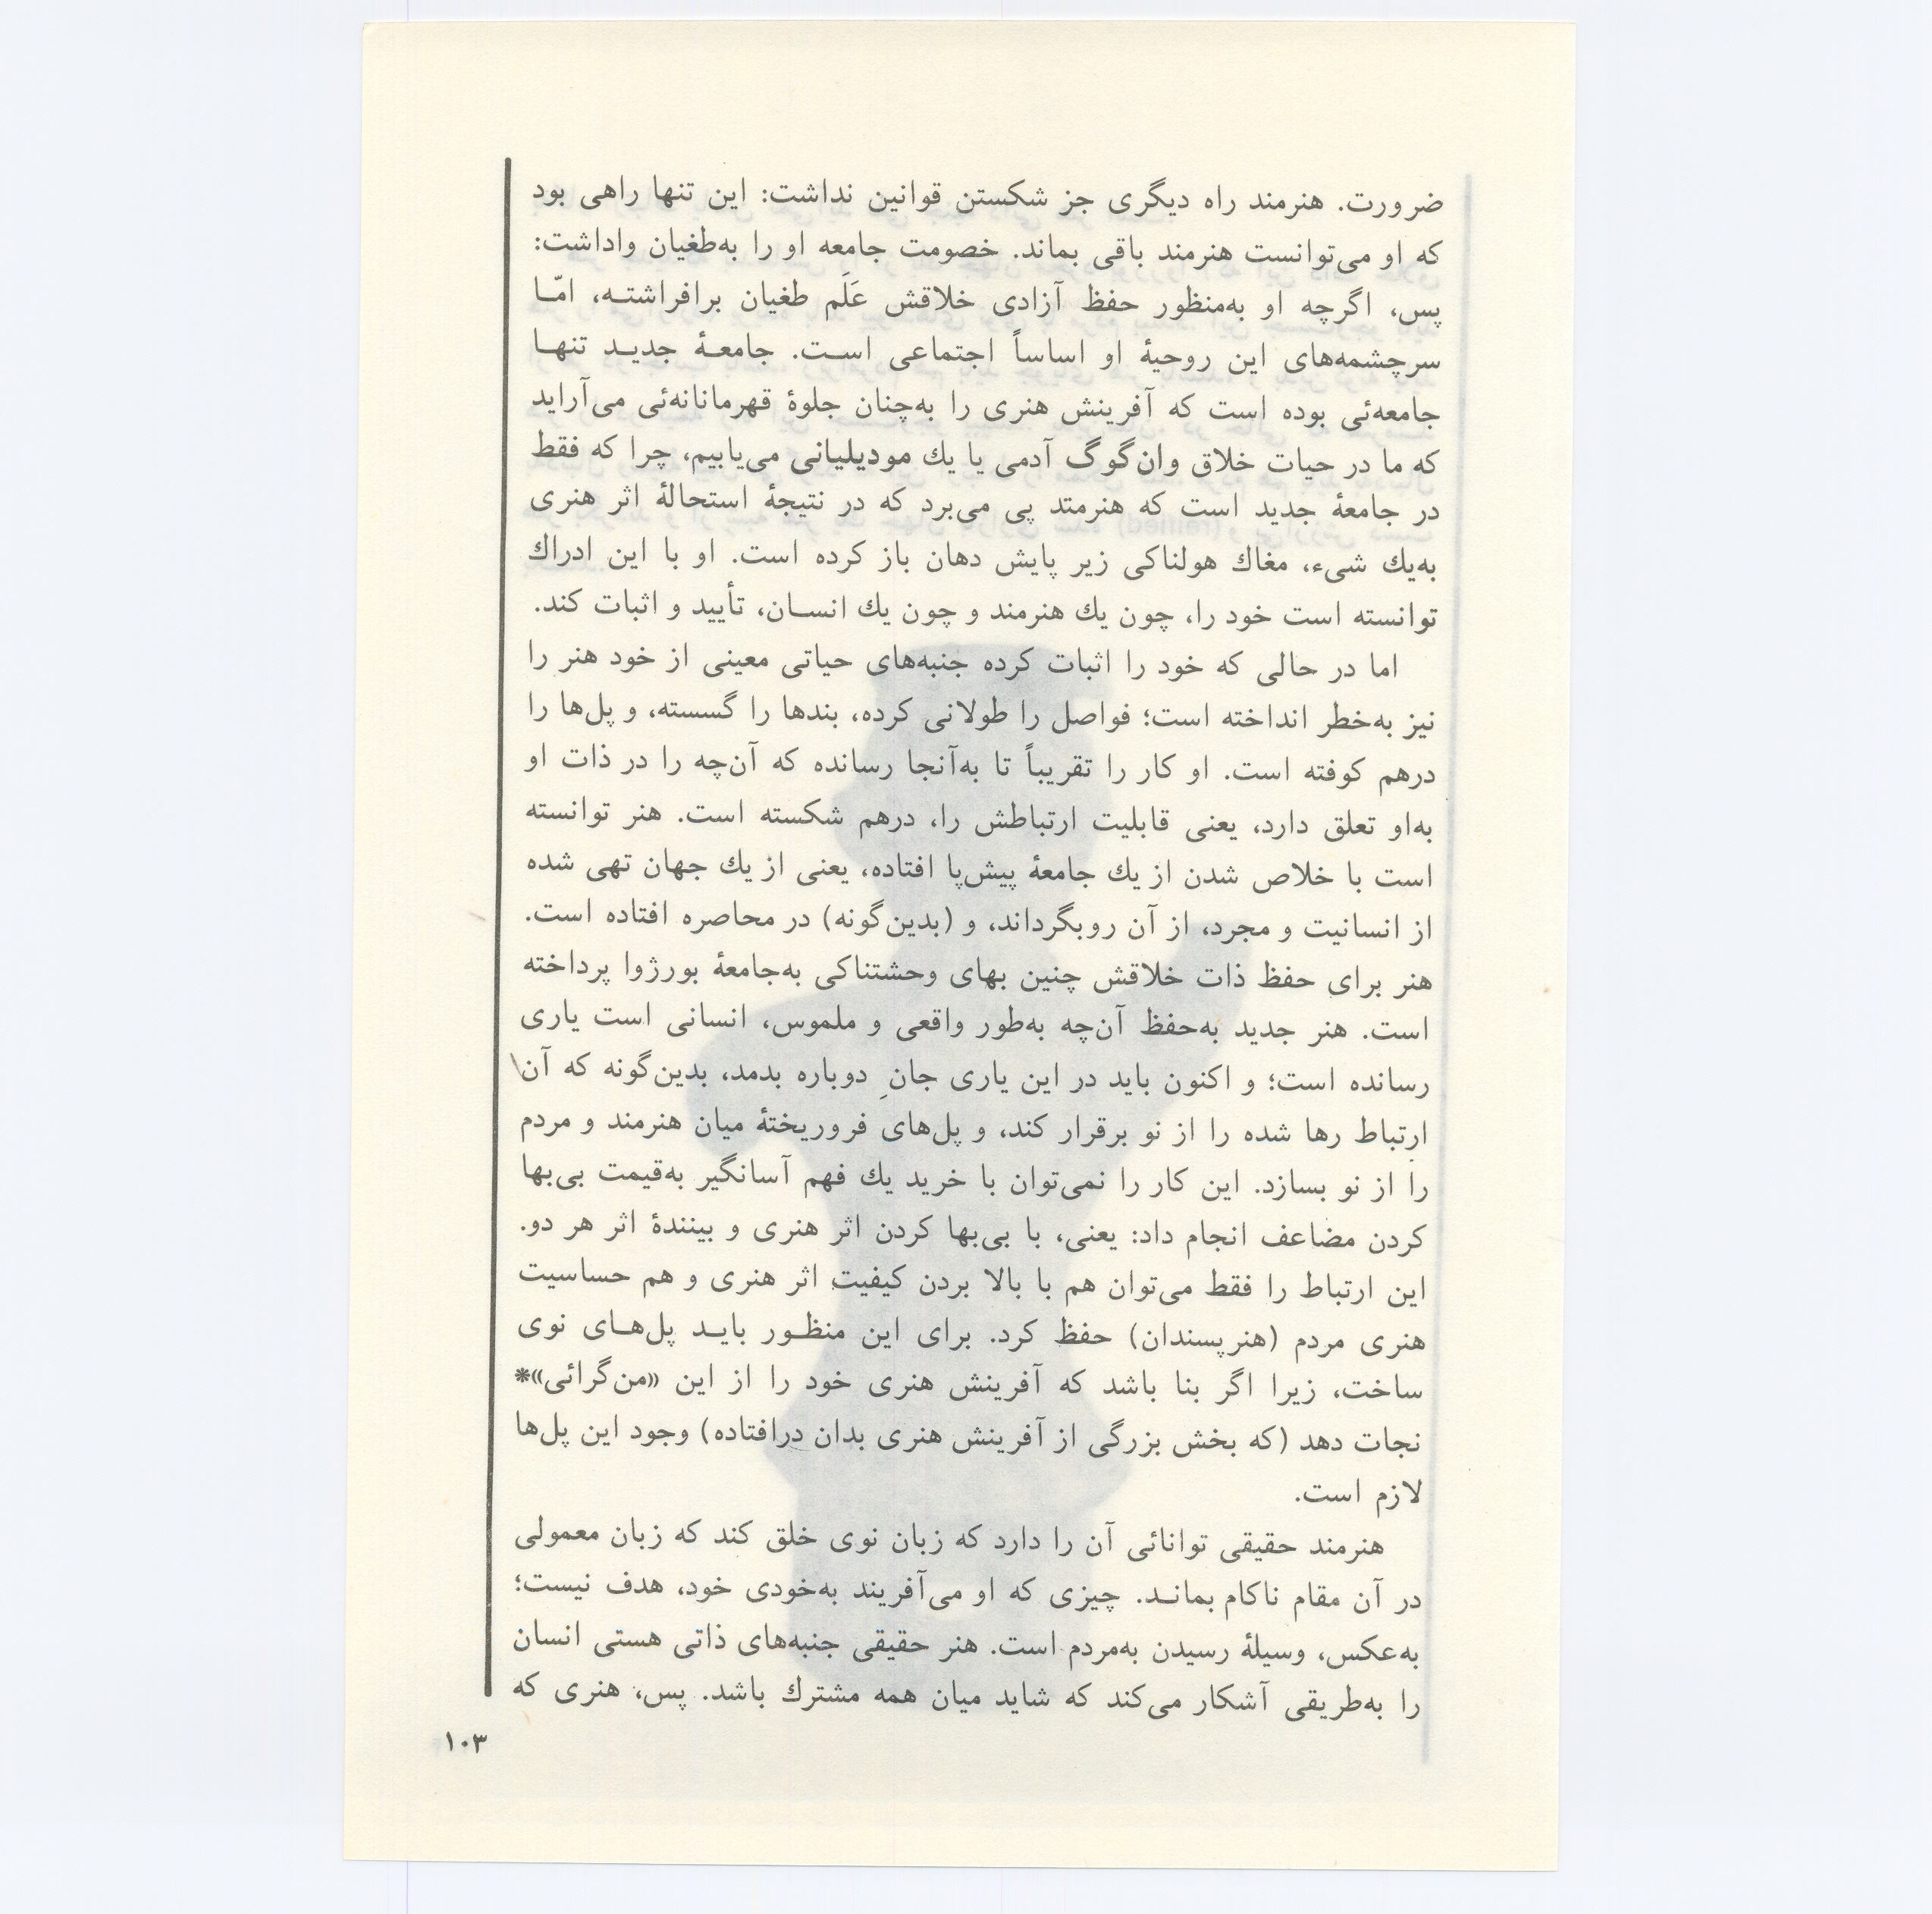 ضرورت. هنرمند راه دیگری جز شکستن قوانین نداشت: این تنها راهی بود
که او می‌توانست هنرمند باقی بماند. خصومت جامعه او را به‌طغیان واداشت:
پس، اگرچه او به‌منظور حفظ آزادی خلاقش عَلَم طغیان برافراشتـه، امّـا
سرچشمه‌های این روحیهٔ او اساساً اجتماعی اسـت. جامعـهٔ جدیـد تنهـا
جامعه‌ئی بوده است که آفرینش هنری را به‌چنان جلوهٔ قهرمانانه‌ئی می‌آراید
که ما در حیات خلاق وان‌گوگ آدمی یا یك مودیلیانی می‌یابیم، چرا که فقط
در جامعهٔ جدید است که هنرمتد پی می‌برد که در نتیجهٔ استحالهٔ اثر هنری
به‌یك شیء، مغاك هولناکی زیر پایش دهان باز کرده است. او با این ادراك
توانسته است خود را، چون یك هنرمند و چون یك انسـان، تأیید و اثبات کند.
اما در حالی که خود را اثبات کرده جنبه‌های حیاتی معینی از خود هنر را
نیز به‌خطر انداخته است؛ فواصل را طولانی کرده، بندها را گسسته، و پل‌ها را
درهم کوفته است. او کار را تقریباً تا به‌آنجا رسانده که آن‌چه را در ذات او
به‌او تعلق دارد، یعنی قابلیت ارتباطش را، درهم شکسته است. هنر توانسته
است با خلاص شدن از یك جامعهٔ پیش‌پا افتاده، یعنی از یك جهان تهی شده
از انسانیت و مجرد، از آن روبگرداند، و (بدین‌گونه) در محاصره افتاده است.
هنر برای حفظ ذات خلاقش چنین بهای وحشتناکی به‌جامعهٔ بورژوا پرداخته
است. هنر جدید به‌حفظ آن‌چه به‌طور واقعی و ملموس، انسانی است یاری
رسانده است؛ و اکنون باید در این یاری جانِ دوباره بدمد، بدین‌گونه که آن
ارتباط رها شده را از نو برقرار کند، و پل‌های فروریختهٔ میان هنرمند و مردم
را از نو بسازد. این کار را نمی‌توان با خرید یك فهم آسانگیر به‌قیمت بی‌بها
کردن مضاعف انجام داد: یعنی، با بی‌بها کردن اثر هنری و بینندهٔ اثر هر دو.
این ارتباط را فقط می‌توان هم با بالا بردن کیفیت اثر هنری و هم حساسیت
هنری مردم (هنرپسندان) حفظ کرد. برای این منظـور بایـد پل‌هـای نوی
ساخت، زیرا اگر بنا باشد که آفرینش هنری خود را از این «من‌گرائی»*
نجات دهد (که بخش بزرگی از آفرینش هنری بدان درافتاده) وجود این پل‌ها
لازم است.
هنرمند حقیقی توانائی آن را دارد که زبان نوی خلق کند که زبان معمولی
در آن مقام ناکام بمانـد. چیزی که او می‌آفریند به‌خودی خود، هدف نیست؛
به‌عکس، وسیلهٔ رسیدن به‌مردم است. هنر حقیقی جنبه‌های ذاتی هستی انسان
را به‌طریقی آشکار می‌کند که شاید میان همه مشترك باشد. پس، هنری که
۱۰۳